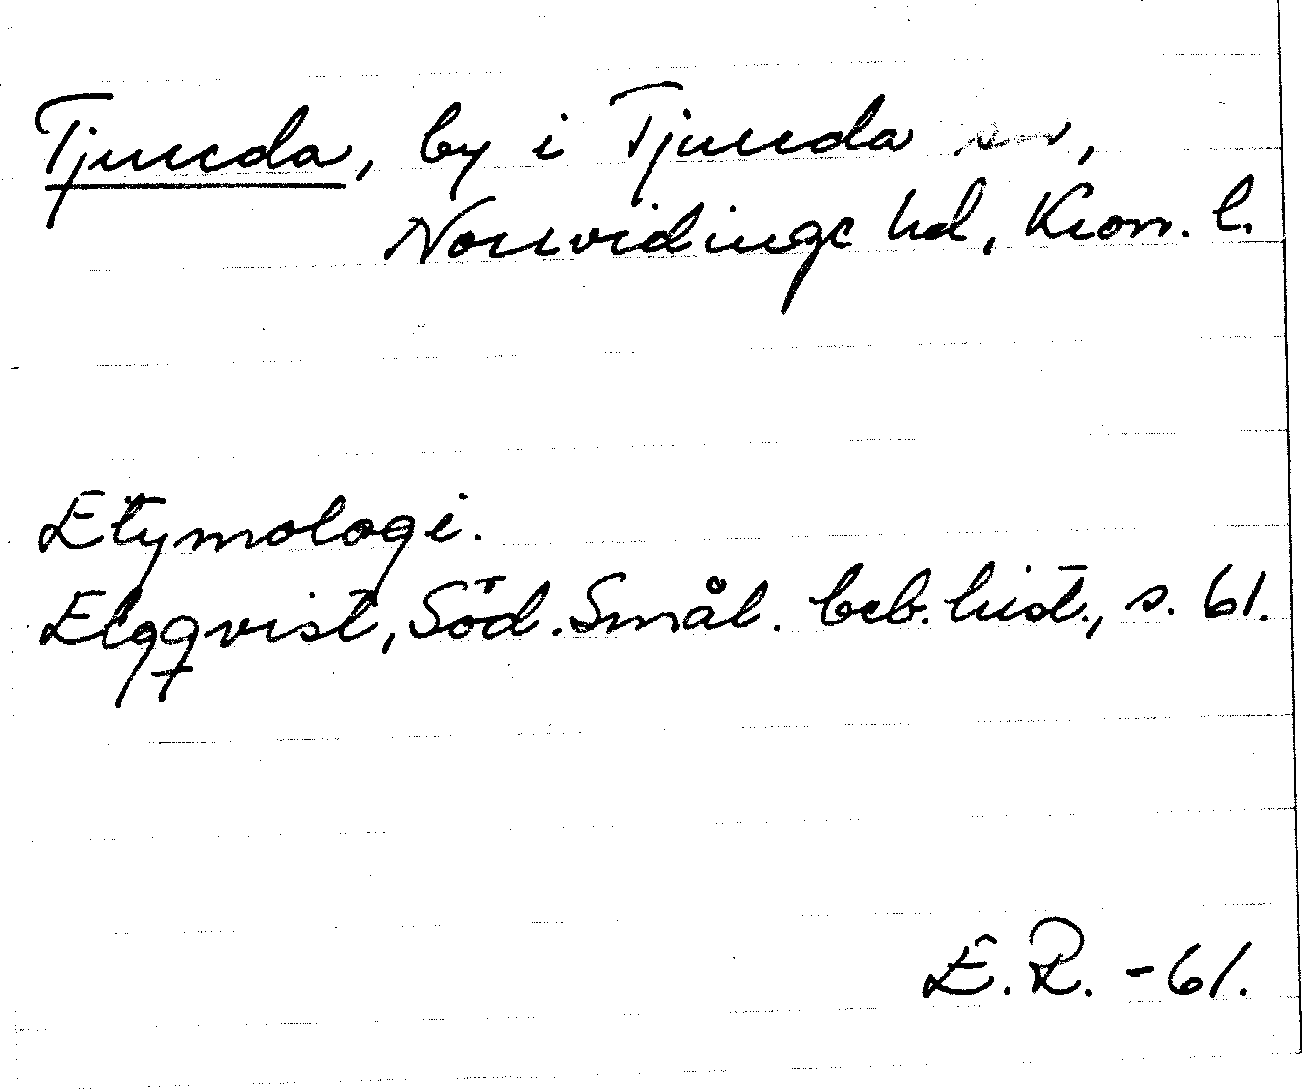 Tjureda, by i Tjureda sn,
Norrvidinge hd, Kron. l.
Etymologi.
Elgqvist, Söd. Smål. beb. hist., s. 61.
E. R. -61.